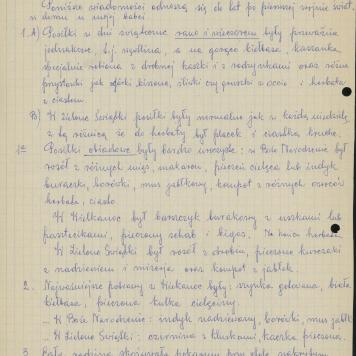 Poniższe wiadomości odnoszą się do lat po pierwszej wojnie świat.
w domu u mojej babci
1. A) Posiłki w dni świąteczne rano i wieczorem były przeważnie
jednakowe, tj. wędlina, a na gorąco kiełbasa, kaszanka
specjalnie robiona z drobnej kaszki i z rodzynkami oraz różne
przystawki jak ogórki kiszone, śliwki czy gruszki w occie i herbata
z ciastem.
B) W Zielone Świątki posiłki były normalnie jak w każdą niedzielę
z tą różnicą że do herbaty był placek i ciastka kruche.
Posiłki obiadowe były bardzo uroczyste: w Boże Narodzenie był
rosół z różnych mięs, makaron, pieczeń cielęca lub indyk
buraczki, borówki, mus jabłkowy, kompot z różnych owoców
herbata, ciasto.
W Wielkanoc był barszczyk burakowy z uszkami lub
pasztecikami, pieczony schab i bigos. Na końcu herbata
W Zielone Świątki był rosół z drobiu, pieczone kurczaki
z nadzieniem i mizeria oraz kompot z jabłek.
2. Najważniejsze potrawy w Wielkanoc były: szynka gotowana, biała
kiełbasa, pieczona kulka cielęciny.
– W Boże Narodzenie: indyk nadziewany, borówki, mus jabłk.
– W Zielone Świątki: czernina z kluskami, kaczka pieczona.
3. Cała rodzina